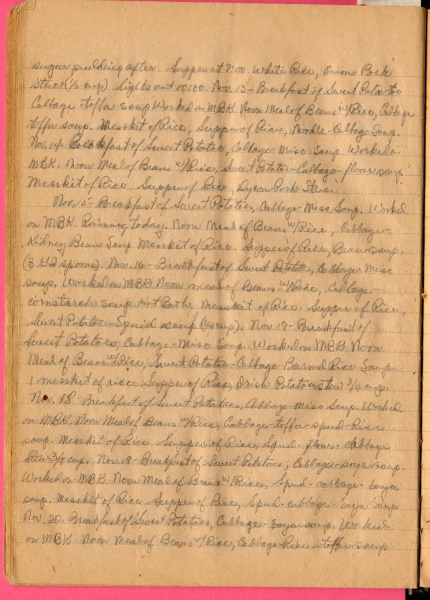 sugar pudding after. Supper at noo. White Rice, Onions Pork
Stew (½ cup) Lights out 10:00. Nov. 13 - Breakfast of Sweet Potato
Cabbage toffu soup Worked on MBK Noon Meal of Beans w/Rice, Cabbage
toffu soup. Messkit of Rice, Supper of Rice, Noodle-Cabbage Soup.
Nov. 14 Breakfast of Sweet Potatoes, Cabbage-Miso Soup. Worked on
MBK. Noon Meal of Beans w/Rice, Sweet Potato-Cabbage-flour soup.
Messkit of Rice. Supper of Rice, Pork Stew.
Nov. 15 - Breakfast of Sweet Potatoes, Cabbage-Miso Soup. Worked
on MBK Raining today. Noon Meal of Beans w/Rice, Cabbage-
Kidney Beans Soup Messkit of Rice. Supper of Rice, Bean soup.
(3 spoons). Nov. 16 - Breakfast of Sweet Potatoes, Cabbage-Miso
soup. Worked on MBK Noon meal of Beans w/Rice, Cabbage-
cornstarch soup. Hot Bath. Messkit of Rice - Supper of Rice,
Sweet Potatoes-Squid soup. Nov. 17 - Breakfast of
Sweet Potatoes, Cabbage-Miso Soup. Worked on MBK Noon
Meal of Beans w/Rice, Sweet Potatoes-Cabbage-Burnd Rice Soup.
1 messkit of rice. Supper of Rice, Irish Potato stew ¾ cup.
Nov. 18 - Breakfast of Sweet Potatoes, Cabbage-miso Soup. Worked
on MBK, Noon Meal of Beans w/Rice, Cabbage-toffu-spud-Rice
soup. Messkit of Rice. Supper of Rice, Spud-flour-Cabbage
Stew cup. Nov. 19 - Breakfast of Sweet Potatoes, Cabbage-soya-soup.
Worked on MBK. Noon Meal of Beans w/Rice, Spud-cabbage-soya
soup. Messkit of Rice. Supper of Rice, Spud-cabbage-Soya Soup.
Nov. 20. Breakfast of Sweet Potatoes, Cabbage-Soya-soup. Worked
on MBK. Noon Meal of Beans w/Rice, Cabbage toffu-soup